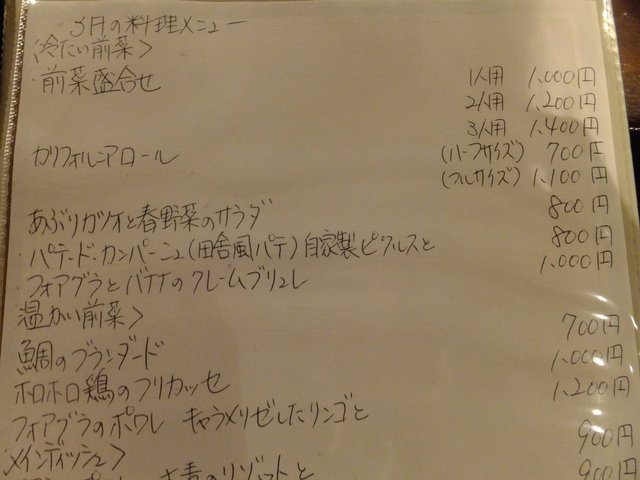 3月の料理メニュー
冷たい前菜>
前菜盛合せ 1人用 1,000円
2人用 1,200円
3人用 1,400円
カリフォルニアロール (ハーフサイズ) 700円
(フルサイズ) 1,100円
あぶりカツオと春野菜のサラダ 800円
パテ・ド・カンパーニュ(田舎風パテ)自家製ピクルスと 800円
フォアグラとバナナのクレームブリュレ 1,000円
温かい前菜>
鯛のブランダード 700円
ホロホロ鶏のフリカッセ 1,000円
フォアグラのポワレ キャラメリゼしたリンゴと 1,200円
メインディッシュ>
900円
のリゾットと 900円